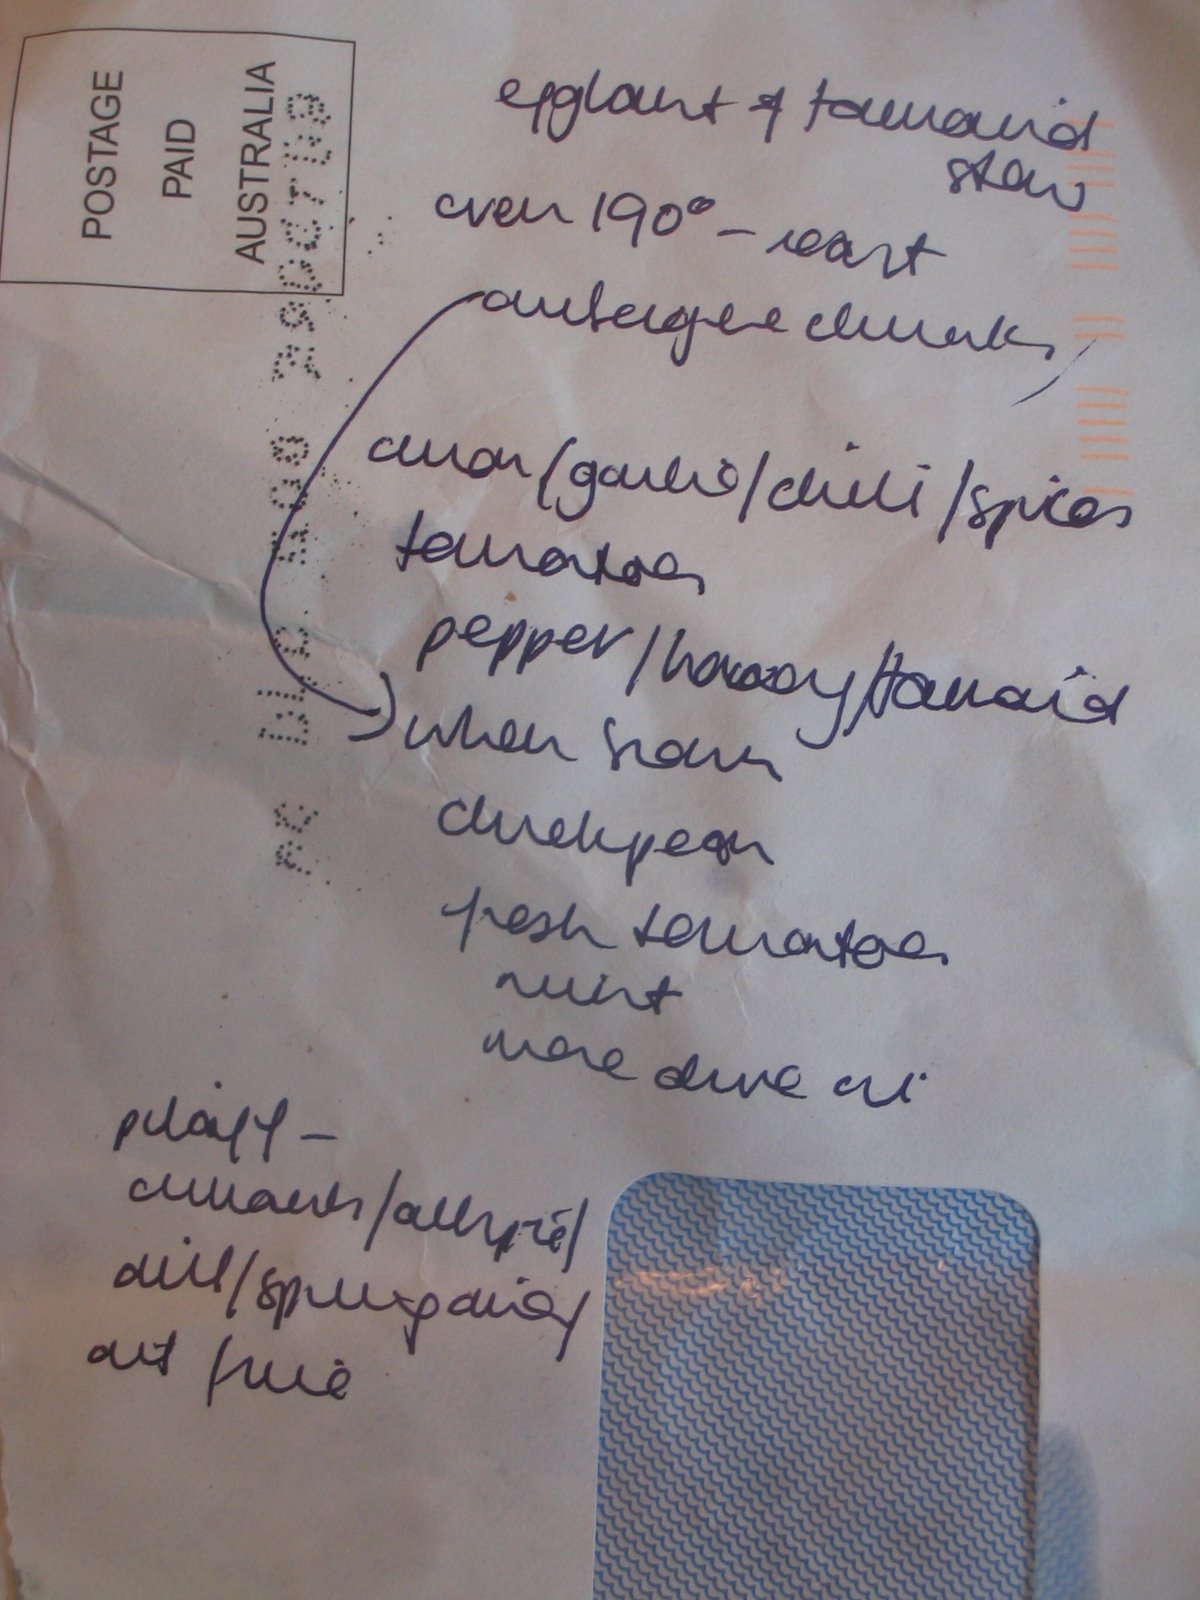 POSTAGE
PAID
AUSTRALIA
eggplant & tamarind
stew
oven 190° - roast
aubergine chunks
onion/garlic/chilli/spices
tomatoes
pepper/honey/tamarind
when brown
chickpeas
fresh tomatoes
mint
more olive oil
pilaff -
currants/allspice/
dill/spring onion/
rice